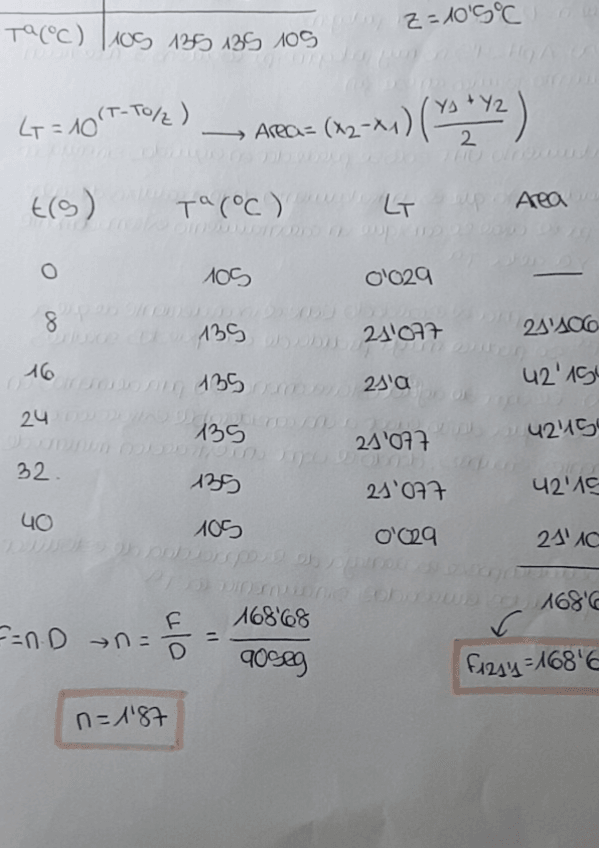 z = 10'5ºC
Tª(ºC) | 105 135 135 105
LT = 10^(T-T0/z) → Area = (x2-x1) ((y1 + y2)/2)
t(s) Tª(ºC) LT Area
0 105 0'029 —
8 135 21'077 21'106
16 135 21'0 42'15
24 135 21'077 42'15
32. 135 21'077 42'15
40 105 0'029 21'10
168'6
F=n·D → n = F/D = 168'68/90seg
F121'1 = 168'6
n = 1'87